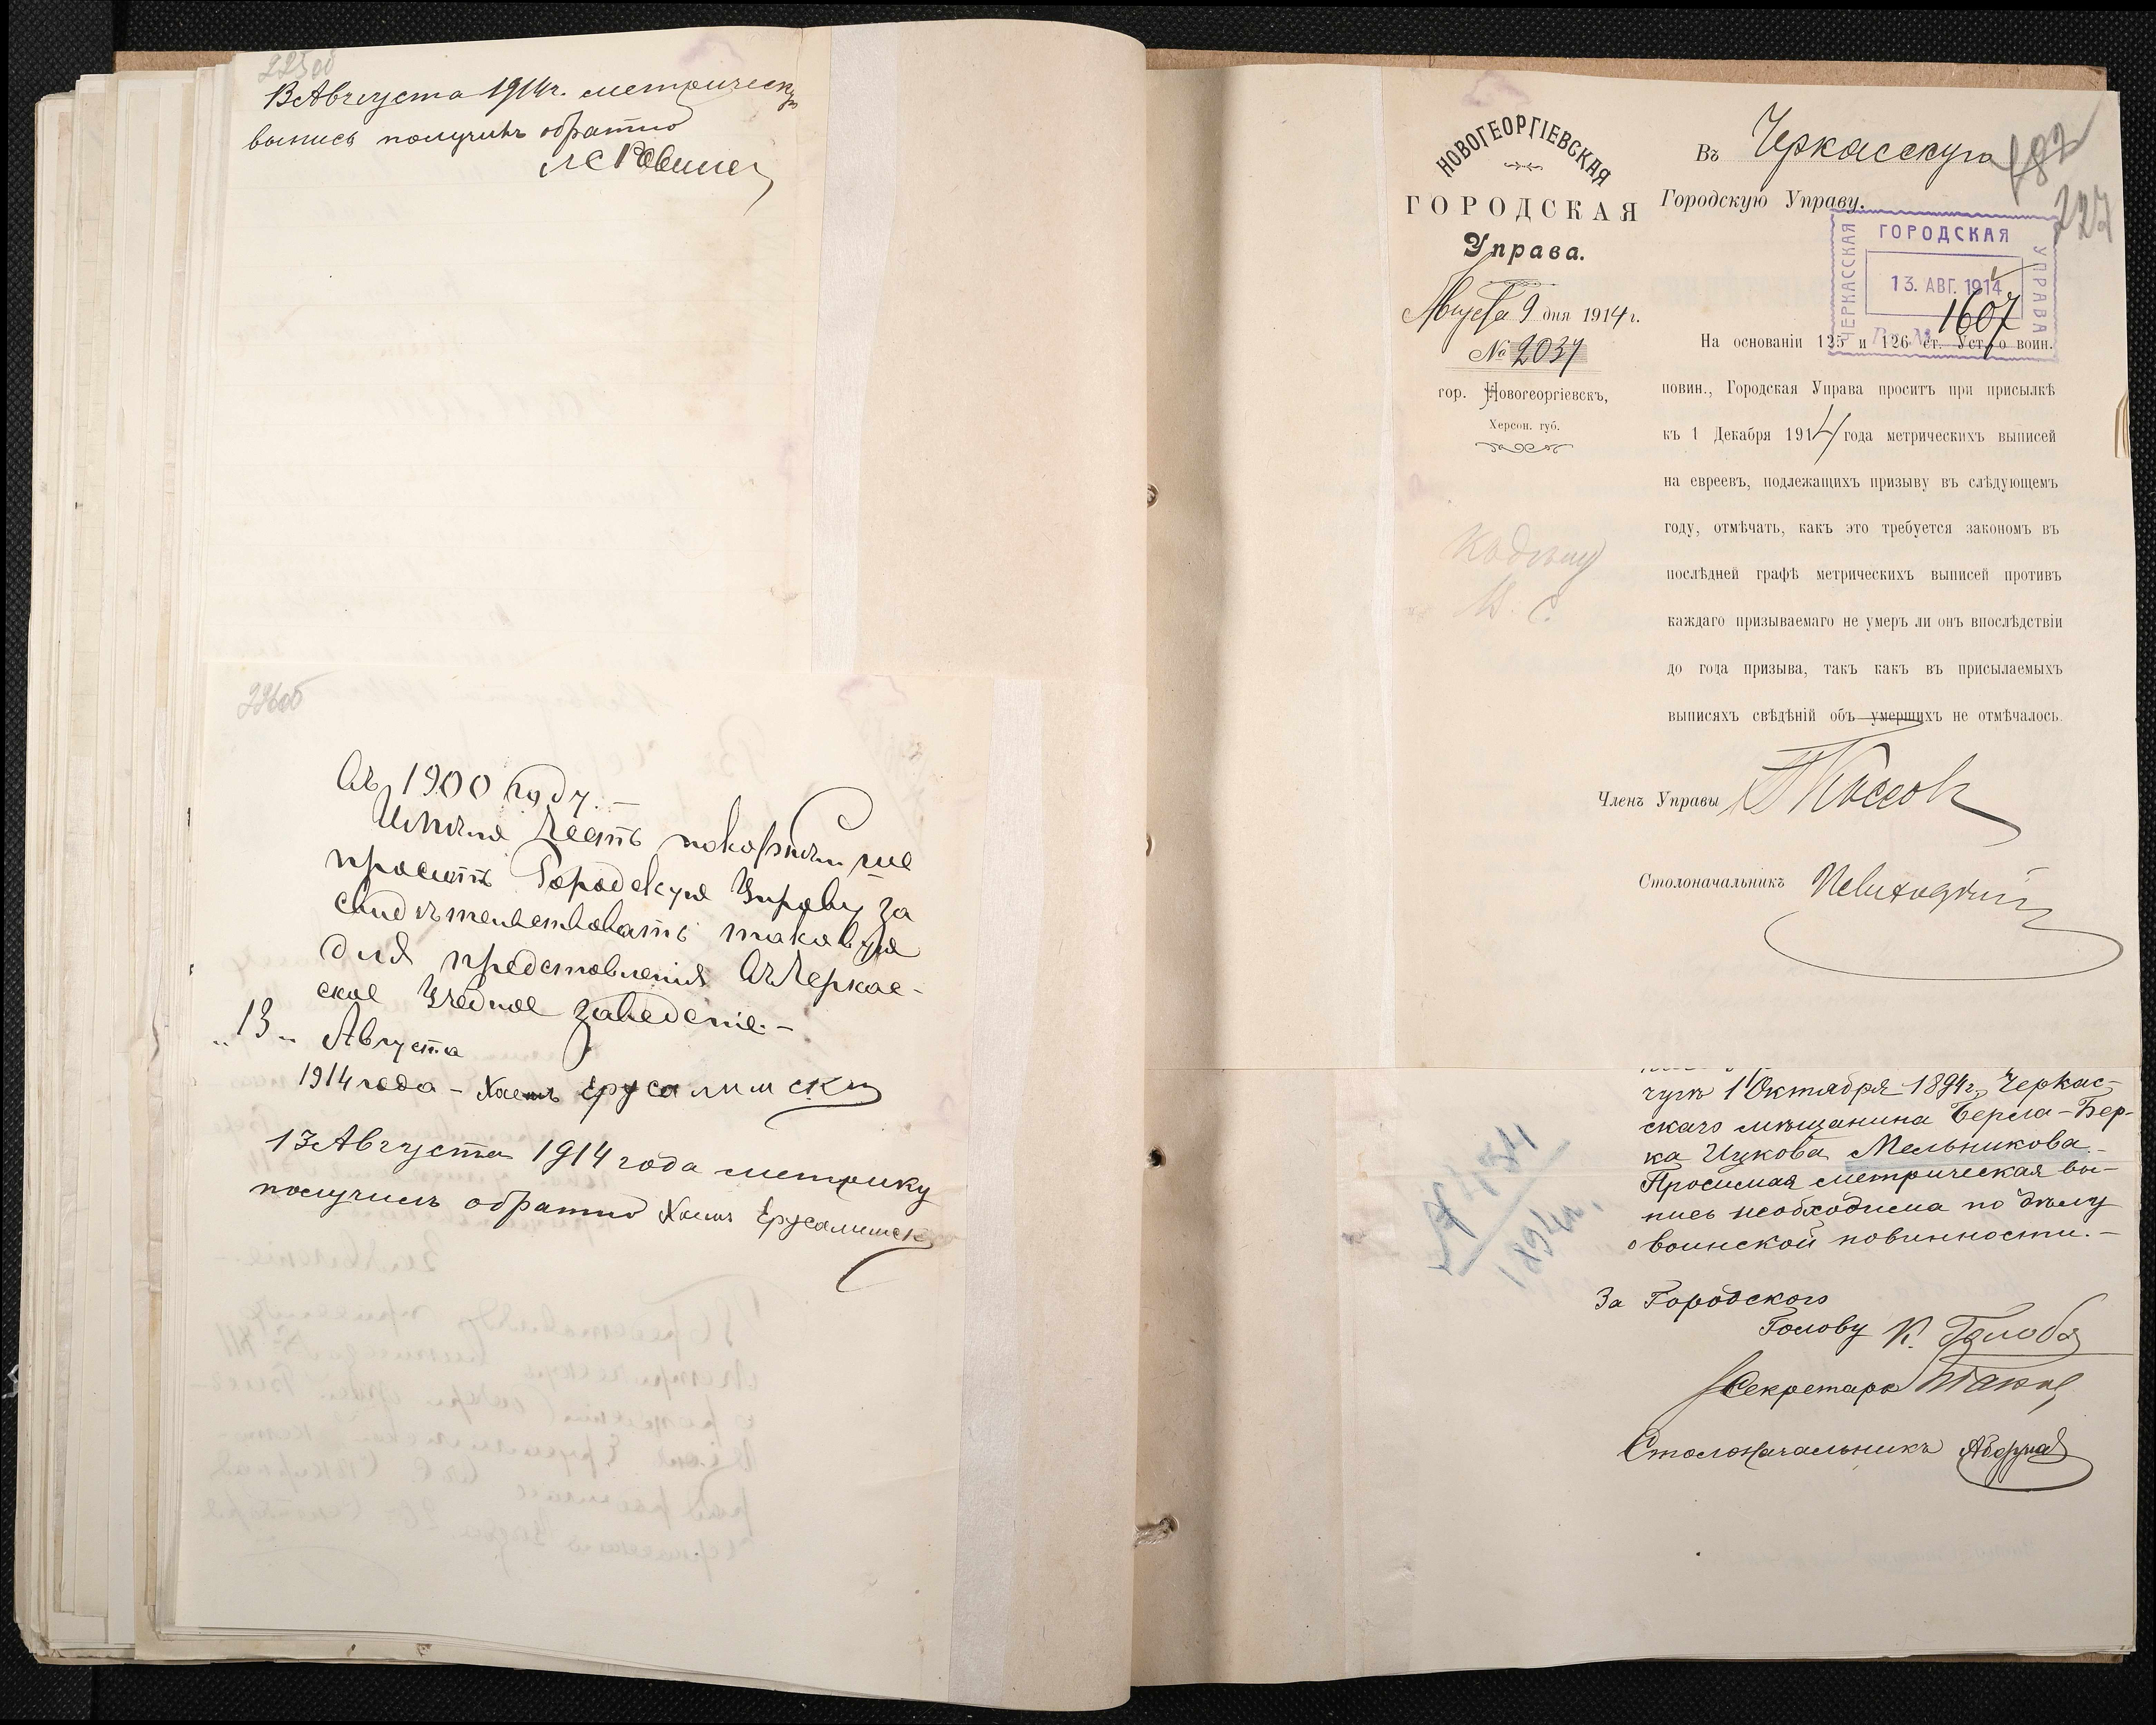 225об
13 Августа 1914г. метрическую
выпись получилъ обратно
226об
Въ 1900 году. —
Имѣю честь покорнѣйше
просить Городскую Управу за
свидѣтельствовать таковую
для представленія въ Черкас-
ское Учебное заведеніе. —
„13„ Августа
1914 года – Хаимъ Ерусалимскій
13 Августа 1914 года метрику
получилъ обратно Хаимъ Ерусалимскій
НОВОГЕОРГІЕВСКАЯ
ГОРОДСКАЯ
Управа.
Августа 9 дня 1914 г.
№ 2037
гор. Новогеоргіевскъ,
Херсон. губ.
Въ Черкасскую
Городскую Управу.
182
227
ЧЕРКАССКАЯ ГОРОДСКАЯ УПРАВА
13. АВГ. 1914
1607
На основаніи 125 и 126 ст. Уст. о воин.
повин., Городская Управа проситъ при присылкѣ
къ 1 Декабря 1914 года метрическихъ выписей
на евреевъ, подлежащихъ призыву въ слѣдующемъ
году, отмѣчать, какъ это требуется закономъ въ
послѣдней графѣ метрическихъ выписей противъ
каждаго призываемаго не умеръ ли онъ впослѣдствіи
до года призыва, такъ какъ въ присылаемыхъ
выписяхъ свѣдѣній объ умершихъ не отмѣчалось.
Членъ Управы
Столоначальникъ
чугѣ 1 Октября 1894г. Черкас-
скаго мѣщанина Берла-Бер-
ка Ицкова Мельникова.
Просимая метрическая вы-
пись необходима по дѣлу
о воинской повинности. —
1894г.
За Городского
Голову К. Голоба
Секретарь
Столоначальникъ